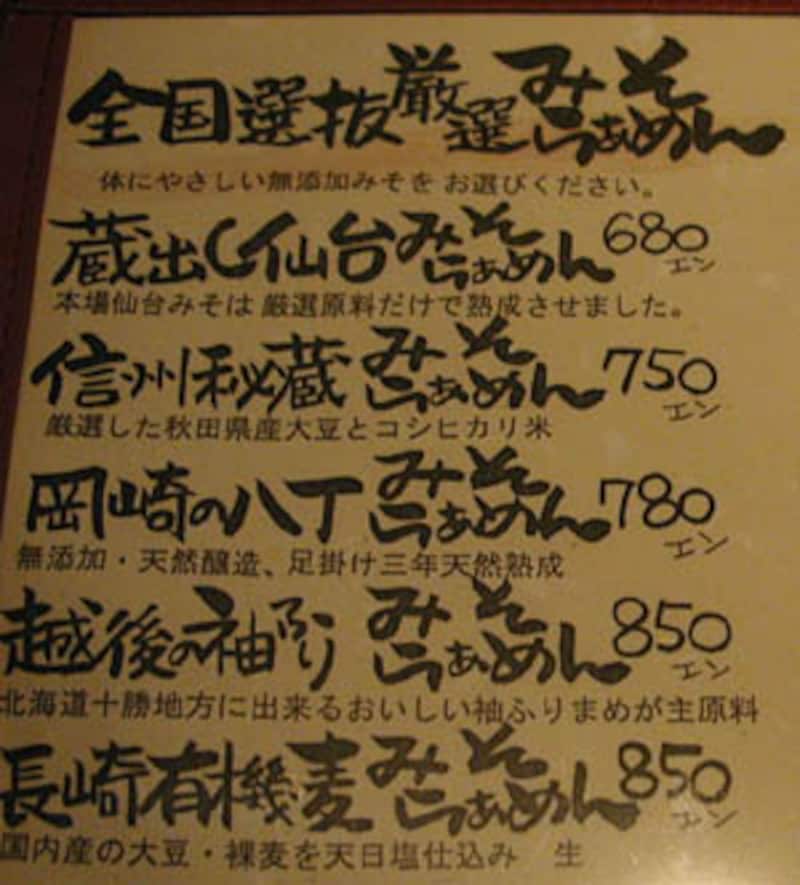 全国選抜厳選みそらぁめん
体にやさしい無添加みそを お選びください。
蔵出し仙台みそらぁめん 680エン
本場仙台みそは 厳選原料だけで熟成させました。
信州秘蔵みそらぁめん 750エン
厳選した秋田県産大豆とコシヒカリ米
岡崎の八丁みそらぁめん 780エン
無添加・天然醸造、足掛け三年天然熟成
越後の袖ふりみそらぁめん 850エン
北海道十勝地方に出来るおいしい袖ふりまめが主原料
長崎有機麦みそらぁめん 850エン
国内産の大豆・裸麦を天日塩仕込み 生